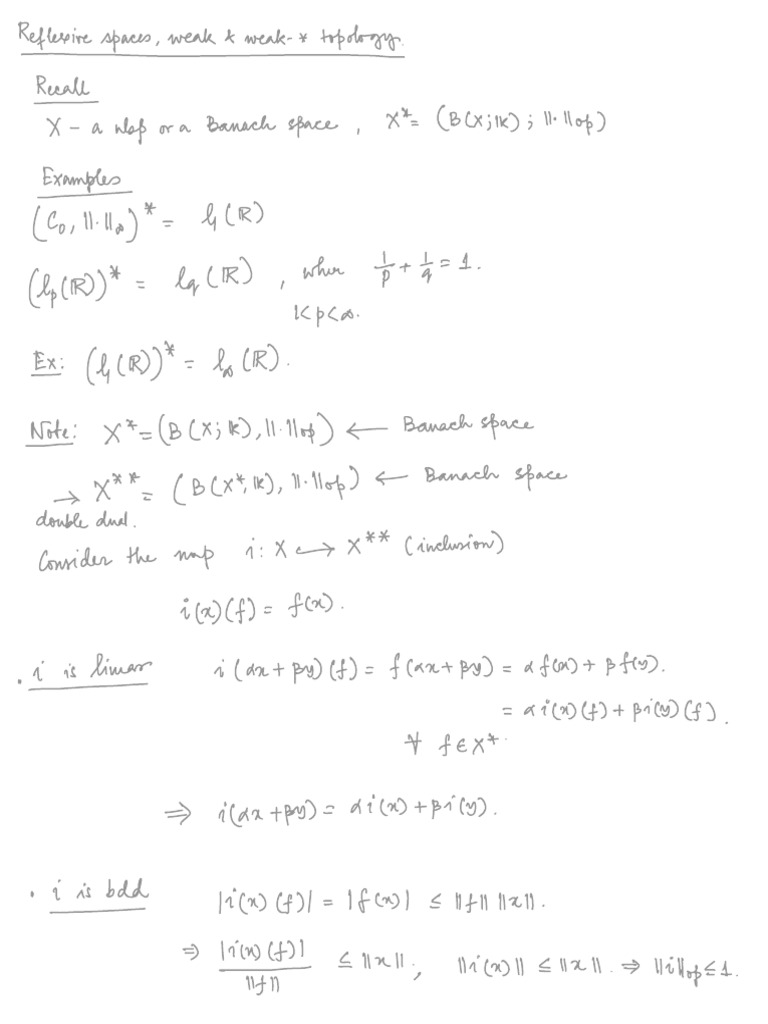 Reflexive spaces, weak & weak-* topology.
Recall
X - a nls or a Banach space, X* = (B(X;𝕜); ||·||op)
Examples
(C₀, ||·||∞)* = l₁(ℝ)
(lp(ℝ))* = lq(ℝ), when 1/p + 1/q = 1.
1<p<∞.
Ex: (l₁(ℝ))* = l∞(ℝ).
Note: X* = (B(X;𝕜), ||·||op) ← Banach space
→ X** = (B(X*, 𝕜), ||·||op) ← Banach space
double dual.
Consider the map i: X ↪ X** (inclusion)
i(x)(f) = f(x).
· i is linear i(αx + βy)(f) = f(αx + βy) = αf(x) + βf(y).
= αi(x)(f) + βi(y)(f).
∀ f∈X*.
⇒ i(αx + βy) = αi(x) + βi(y).
· i is bdd |i(x)(f)| = |f(x)| ≤ ||f|| ||x||.
⇒ |i(x)(f)| / ||f|| ≤ ||x||, ||i(x)|| ≤ ||x||. ⇒ ||i||op ≤ 1.